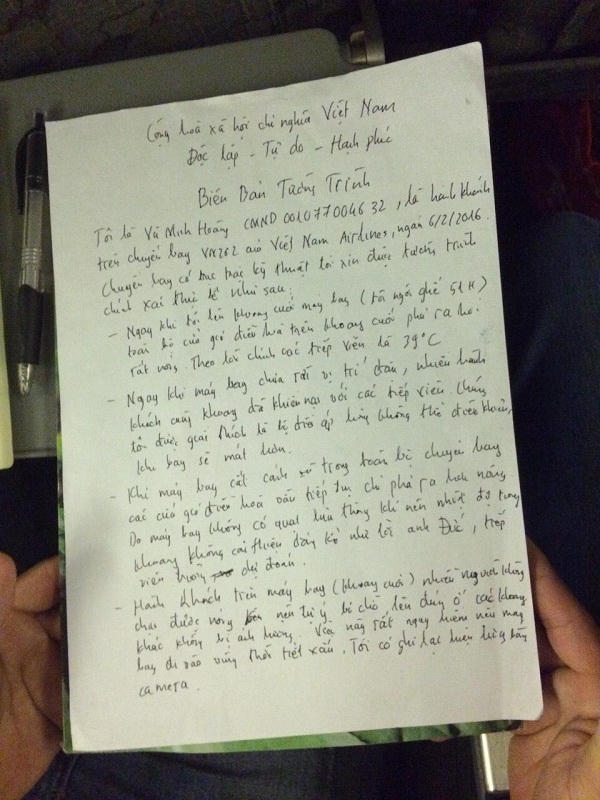 Cộng hoà xã hội chủ nghĩa Việt Nam
Độc lập - Tự do - Hạnh phúc
Biên Bản Tường Trình
Tôi là Vũ Minh Hoàng CMND 001077004632, là hành khách
trên chuyến bay VN262 của Việt Nam Airlines, ngày 6/2/2016.
Chuyến bay có trục trặc kỹ thuật tôi xin được tường trình
chính xác thực tế như sau:
- Ngay khi tôi lên khoang cuối máy bay (tôi ngồi ghế 51H)
toàn bộ cửa gió điều hoà trên khoang cuối phả ra hơi
rất nóng. Theo lời chính các tiếp viên là 39°C
- Ngay khi máy bay chưa rời vị trí đậu, nhiều hành
khách cùng khoang đã khiếu nại với các tiếp viên. Chúng
tôi được giải thích là hệ thống không thể điều khiển,
khi bay sẽ mát hơn.
- Khi máy bay cất cánh trong toàn bộ chuyến bay
các cửa gió điều hoà vẫn tiếp tục chỉ phả ra hơi nóng
Do máy bay không có lưu thông khí nên nhiệt độ trong
khoang không cải thiện đáng kể như lời anh Đức, tiếp
viên trưởng dự đoán.
- Hành khách trên máy bay (khoang cuối) nhiều người không
chịu được nóng nên tự ý bỏ chỗ lên đứng ở các khoang
khác không bị ảnh hưởng. Việc này rất nguy hiểm nếu máy
bay đi vào vùng thời tiết xấu. Tôi có ghi lại hiện tượng bằng
camera.